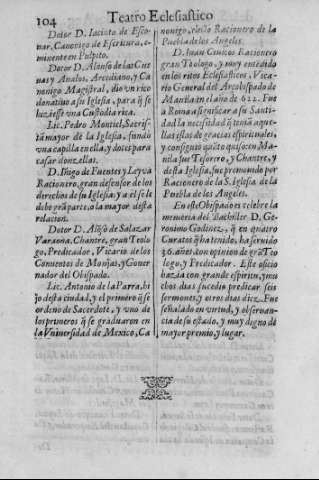 104 Teatro Eclesiastico
Dotor D. Iacinto de Esco-
uar, Canonigo de Escritura, e-
minente en Pulpito.
Dotor D. Alonso de las Cue
uas y Aualos, Arcediano, y Ca
nonigo Magistral, dio vn rico
donatiuo a su Iglesia, para q̃ se
luziesse vna Custodia rica.
Lic. Pedro Montiel, Sacris-
tã mayor de la Iglesia, fundò
vna capilla en ella, y dotes para
casar donzellas.
D. Iñigo de Fuentes y Leyva
Racionero, gran defensor de los
derechos de su Iglesia, y a el se le
debe grã parte, o la mayor desta
relacion.
Dotor D. Alõso de Salazar
Varaona, Chantre, gran Teolo
go, Predicador, Vicario de los
Conuentos de Monjas, y Gouer
nador del Obispado.
Lic. Antonio de la Parra, hi
jo desta ciudad, y el primero q̃ se
ordeno de Sacerdote, y vno de
los primeros q̃ se graduaron en
la Vniuersidad de Mexico, Ca
nonigo, electo Racionero de la
Puebla de los Angeles.
D. Iuan Racionero
gran Teologo, y muy entẽdido
en los ritos Eclesiasticos, Vica-
rio General del Arçobispado de
Manila en el año de 622. Fue
a Roma a significar a su Santi-
dad la necessidad q̃ tenia aque-
llas islas de gracias espirituales,
y consiguio quãto quiso: en Ma
nila fue Tesorero, y Chantre, y
desta Iglesia, fue promouido por
Racionero de la S. Iglesia de la
Puebla de los Angeles.
En este Obispado es celebre la
memoria del Bachiller D. Ge-
ronimo Godinez, q̃ en quatro
Curatos q̃ ha tenido, ha seruido
36. años con opinion de grã Teo
logo, y Predicador. Este oficio
hazia con grande espiritu, y mu
chos dias sucedio predicar seis
sermones, y otros dias diez. Fue
señalado en virtud, y obseruan-
cia de su estado, y muy digno de
mayor premio, y lugar.